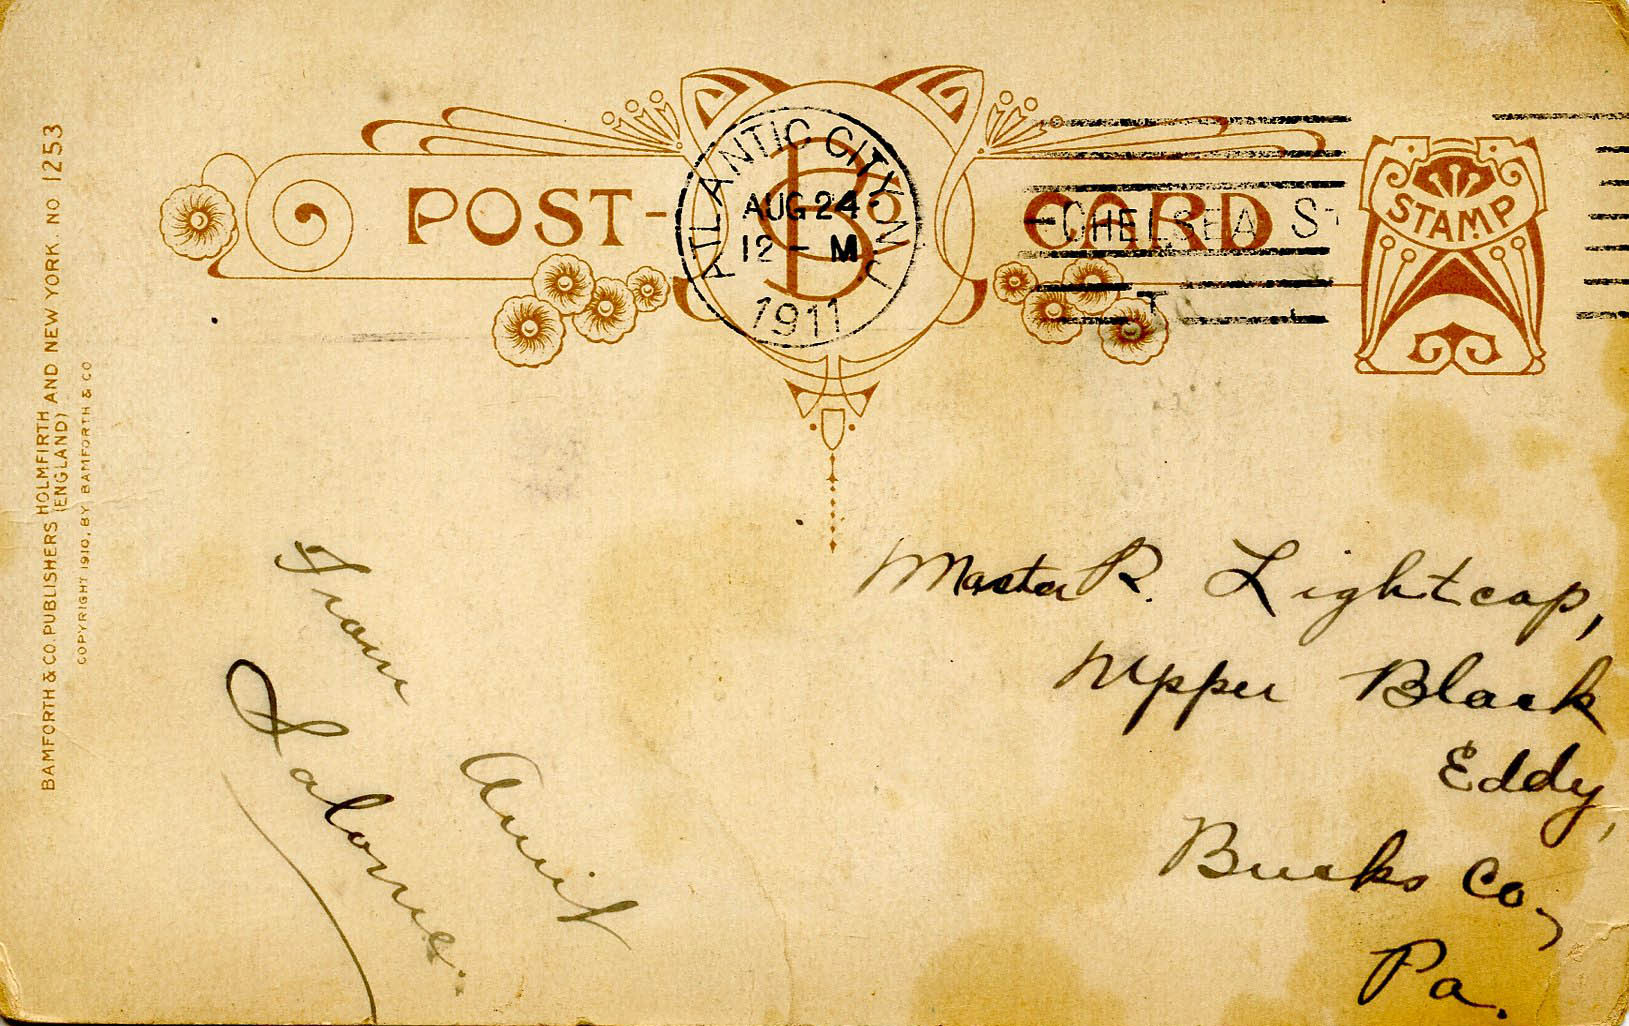 BAMFORTH & CO. PUBLISHERS HOLMFIRTH AND NEW YORK. NO. 1253
(ENGLAND)
COPYRIGHT 1910, BY BAMFORTH & CO
POST-CARD
B
ATLANTIC CITY N.J.
AUG 24
12 - M
1911
CHELSEA ST
STAMP
From
Aunt
Salome.
Master R. Lightcap,
Upper Black
Eddy,
Bucks Co,
Pa.